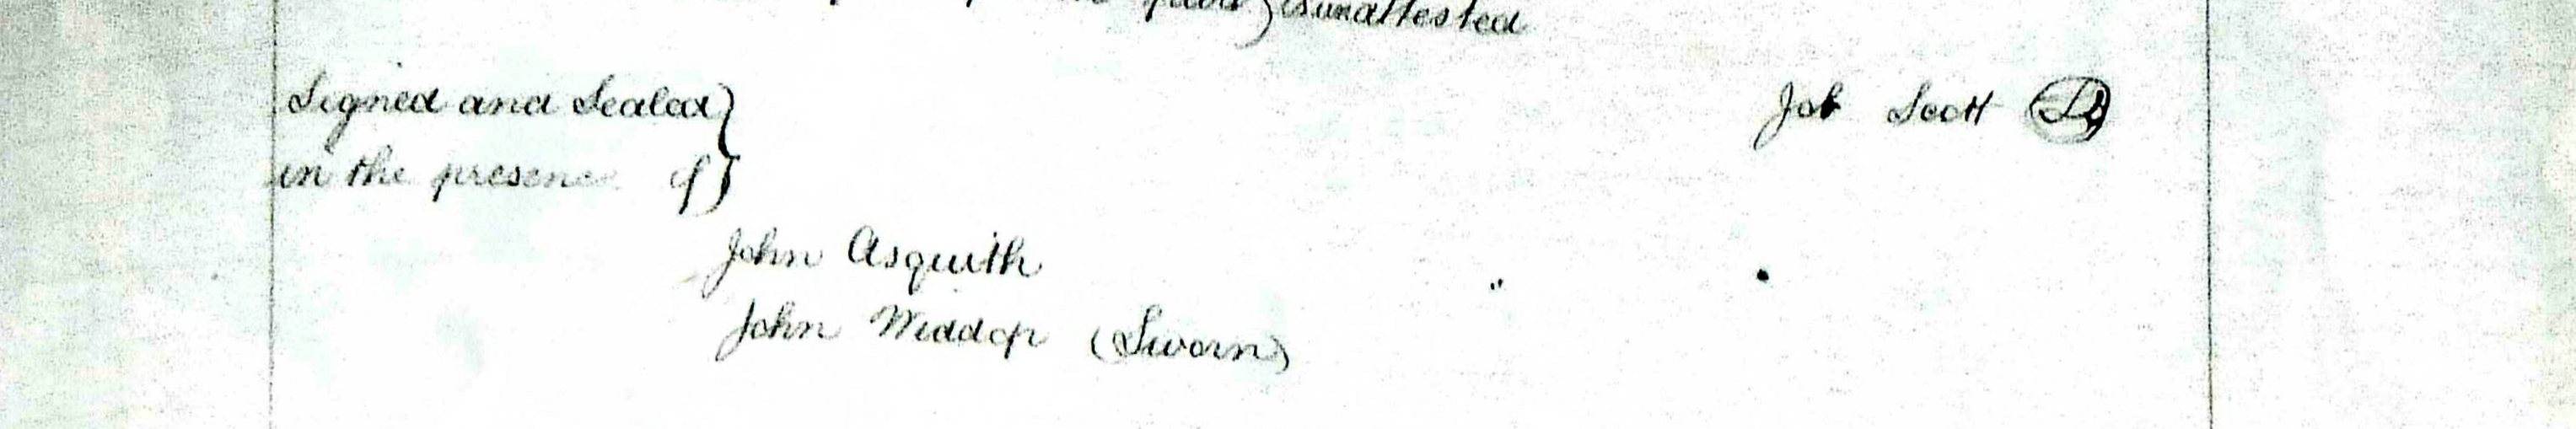 is unattested
Signed and Sealed } Job Scott
in the presence of }
John Asquith
John Widdop (Sworn)